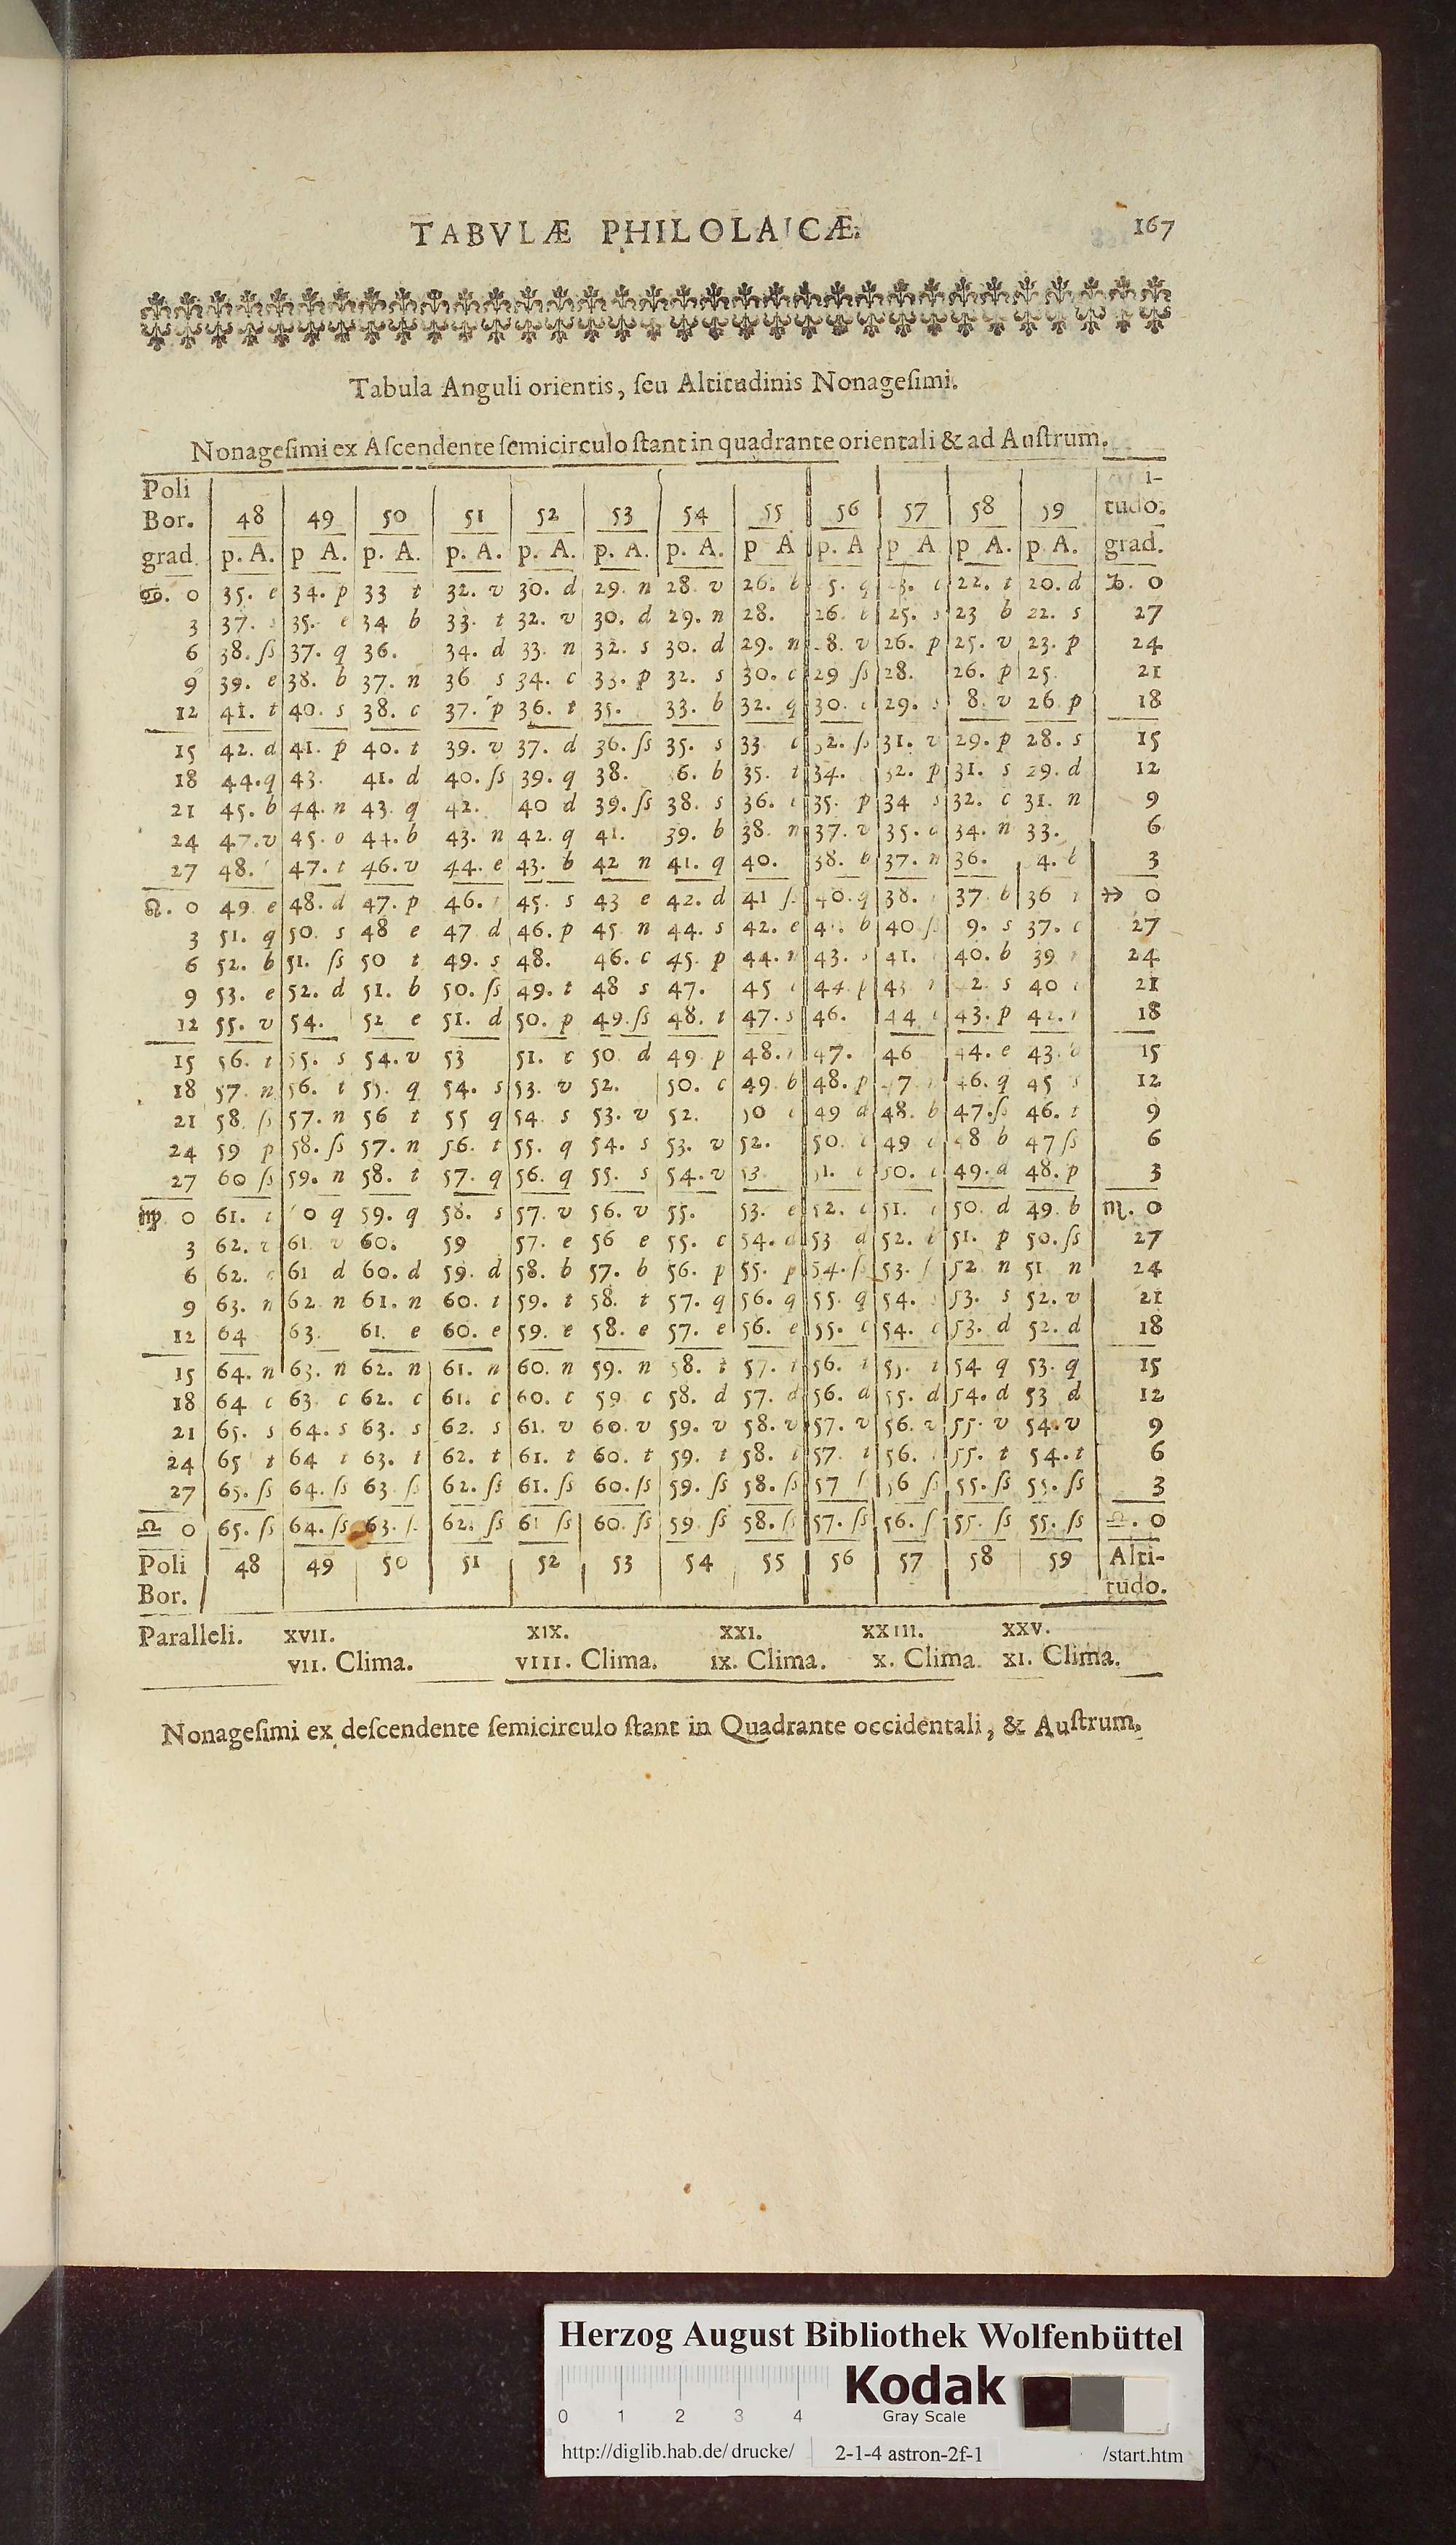 TABVLÆ PHILOLAICÆ. 167
Tabula Anguli orientis, ſeu Altitudinis Nonageſimi.
Nonageſimi ex Aſcendente ſemicirculo ſtant in quadrante orientali & ad Auſtrum.
Poli i-
Bor. 48 49 50 51 52 53 54 55 56 57 58 59 tudo.
grad. p. A. p A. p. A. p. A. p. A. p. A. p. A. p A p. A p A p A. p A. grad.
♋. 0 35. e 34. p 33 t 32. v 30. d 29. n 28. v 26. b 5. q 3. 22. t 20. d ♑. 0
3 37. s 35. e 34 b 33. t 32. v 30. d 29. n 28. 26. t 25. s 23 b 22. s 27
6 38. ſs 37. q 36. 34. d 33. n 32. s 30. d 29. n 8. v 26. p 25. v 23. p 24
9 39. e 38. b 37. n 36 s 34. c 33. p 32. s 30. c 29 ſs 28. 26. p 25. 21
12 41. t 40. s 38. c 37. p 36. t 35. 33. b 32. q 30. 29. s 8. v 26 p 18
15 42. d 41. p 40. t 39. v 37. d 36. ſs 35. s 33 2. ſs 31. v 29. p 28. s 15
18 44. q 43. 41. d 40. ſs 39. q 38. 6. b 35. t 34. 32. p 31. s 29. d 12
21 45. b 44. n 43. q 42. 40 d 39. ſs 38. s 36. 35. p 34 s 32. c 31. n 9
24 47. v 45. 44. b 43. n 42. q 41. 39. b 38. n 37. v 35. 34. n 33. 6
27 48. 47. t 46. v 44. e 43. b 42 n 41. q 40. 38. b 37. n 36. 4. 3
♌. 0 49 e 48. d 47. p 46. 45. s 43 e 42. d 41 40. q 38. 37. b 36 ♐ 0
3 51. q 50. s 48 e 47 d 46. p 45 n 44. s 42. e 4 b 40 9. s 37. 27
6 52. b 51. ſs 50 t 49. s 48. 46. c 45. p 44. n 43. 41. 40. b 39 24
9 53. e 52. d 51. b 50. ſs 49. t 48 s 47. 45 44 p 43 2. s 40 21
12 55. v 54. 52 e 51. d 50. p 49. ſs 48. t 47. s 46. 44 43. p 42. 18
15 56. t 55. s 54. v 53 51. c 50. d 49 p 48. 47. 46 44. e 43. 15
18 57. n 56. t 55. q 54. s 53. v 52. 50. c 49 b 48. p 7 46. q 45 s 12
21 58. ſs 57. n 56 t 55 q 54 s 53. v 52. 50 49 d 48. b 47. ſs 46. t 9
24 59 p 58. ſs 57. n 56. t 55. q 54. s 53. v 52. 50. 49 48 b 47 ſs 6
27 60 ſs 59. n 58. t 57. q 56. q 55. s 54. v 53. 51. 50. 49. d 48. p 3
♍ 0 61. t 0 q 59. q 58. s 57. v 56. v 55. 53. e 52. 51. 50. d 49. b ♏. 0
3 62. 61 v 60. 59 57. e 56 e 55. c 54. 53 d 52. 51. p 50. ſs 27
6 62. 61 d 60. d 59. d 58. b 57. b 56. p 55. p 54. 53. 52 n 51 n 24
9 63. n 62 n 61. n 60. t 59. t 58. t 57. q 56. q 55. q 54. 53. s 52. v 21
12 64 63. 61. e 60. e 59. e 58. e 57. e 56. e 55. 54. 53. d 52. d 18
15 64. n 63. n 62. n 61. n 60. n 59. n 58. t 57. 56. 55. t 54 q 53. q 15
18 64 c 63 c 62. c 61. c 60. c 59 c 58. d 57. d 56. d 55. d 54. d 53 d 12
21 65. s 64. s 63. s 62. s 61. v 60. v 59. v 58. v 57. v 56. v 55. v 54. v 9
24 65 t 64 t 63. t 62. t 61. t 60. t 59. t 58. 57. t 56. 55. t 54. t 6
27 65. ſs 64. ſs 63 ſs 62. ſs 61. ſs 60. ſs 59. ſs 58. ſs 57 56 ſs 55. ſs 55. ſs 3
♎ 0 65. ſs 64. ſs 63. 62. ſs 61 ſs 60. ſs 59 ſs 58. ſs 57. ſs 56. 55. ſs 55. ſs ♎. 0
Poli 48 49 50 51 52 53 54 55 56 57 58 59 Alti-
Bor. tudo.
Paralleli. XVII. XIX. XXI. XXIII. XXV.
VII. Clima. VIII. Clima. IX. Clima. X. Clima. XI. Clima.
Nonageſimi ex deſcendente ſemicirculo ſtant in Quadrante occidentali, & Auſtrum.
Herzog August Bibliothek Wolfenbüttel
Kodak
Gray Scale
0 1 2 3 4
http://diglib.hab.de/drucke/ 2-1-4 astron-2f-1 /start.htm